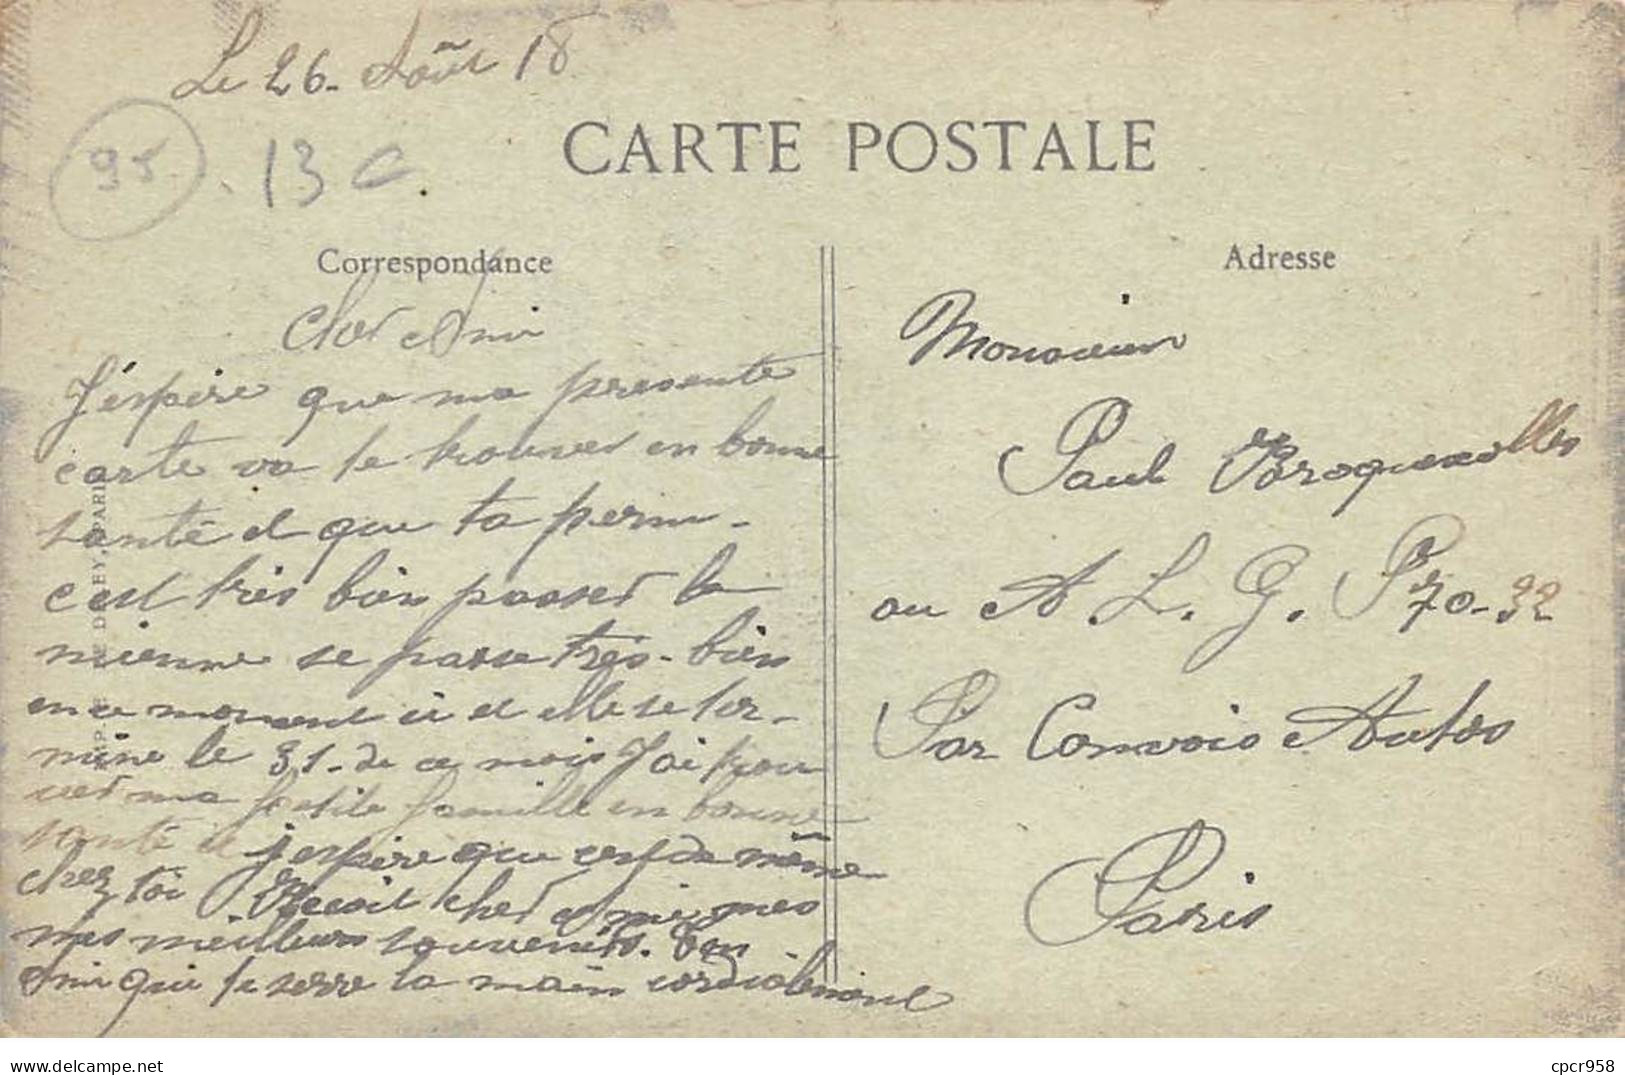 Le 26. Août 18
95 13 c.
CARTE POSTALE
Correspondance
Adresse
Cher Ami
J'éspère que ma presente
carte va te trouver en bonne
santé et que ta perm-
c'est très bien passer la
mienne se passe très-bien
en ce moment et elle se ter-
mine le 31. de ce mois J'ai trou
ver ma petite famille en bonne
santé et j'espère que cest de même
chez toi Recoit cher Ami mes
mes meilleurs souvenirs. Ton
Ami qui te serre la main cordialement
Monsieur
Paul
au A. L. G. P 70-32
Par Convois Autos
Paris
DEY, PARIS
cpcr958